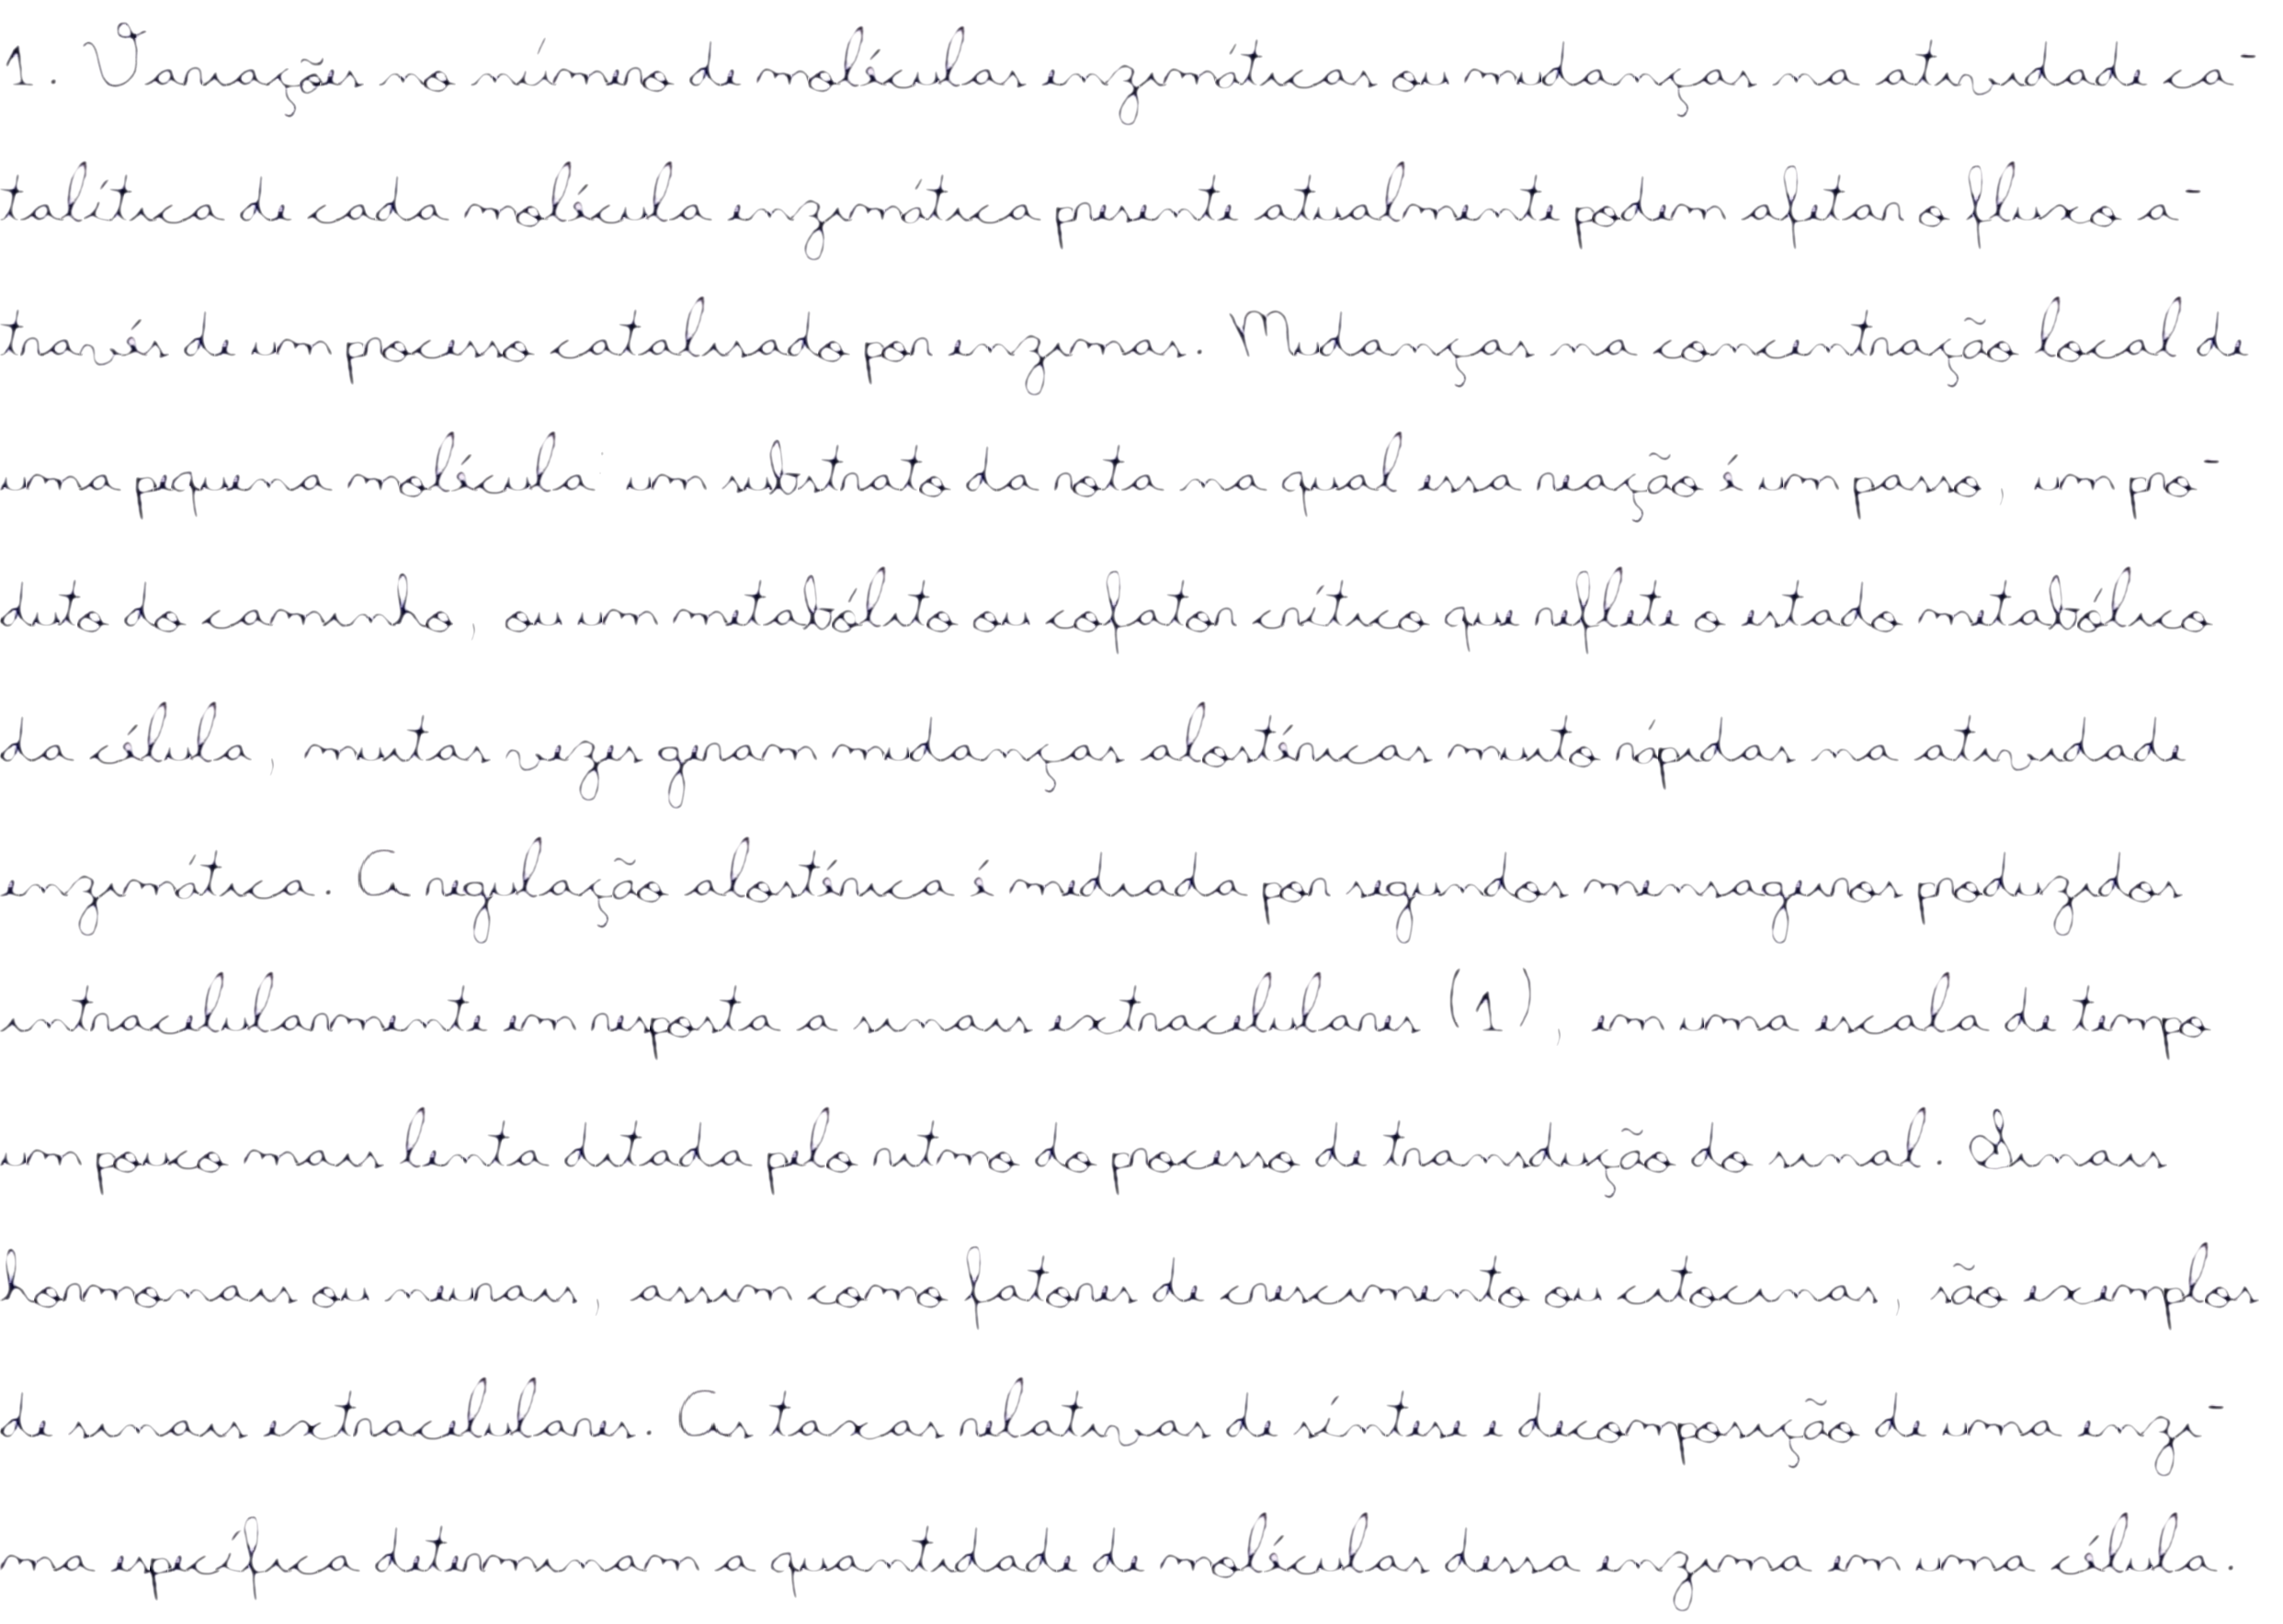 1. Variações no número de moléculas enzimáticas ou mudanças na atividade ca-
talítica de cada molécula enzimática presente atualmente podem afetar o fluxo a-
través de um processo catalisado por enzimas. Mudanças na concentração local de
uma pequena molécula: um substrato da rota na qual essa reação é um passo, um pro-
duto do caminho, ou um metabólito ou cofator crítico que reflete o estado metabólico
da célula, muitas vezes geram mudanças alostéricas muito rápidas na atividade
enzimática. A regulação alostérica é mediada por segundos mensageiros produzidos
intracelularmente em resposta a sinais extracelulares (1), em uma escala de tempo
um pouco mais lenta ditada pelo ritmo do processo de transdução do sinal. Sinais
hormonais ou neurais, assim como fatores de crescimento ou citocinas, são exemplos
de sinais extracelulares. As taxas relativas de síntese e decomposição de uma enzi-
ma específica determinam a quantidade de moléculas dessa enzima em uma célula.